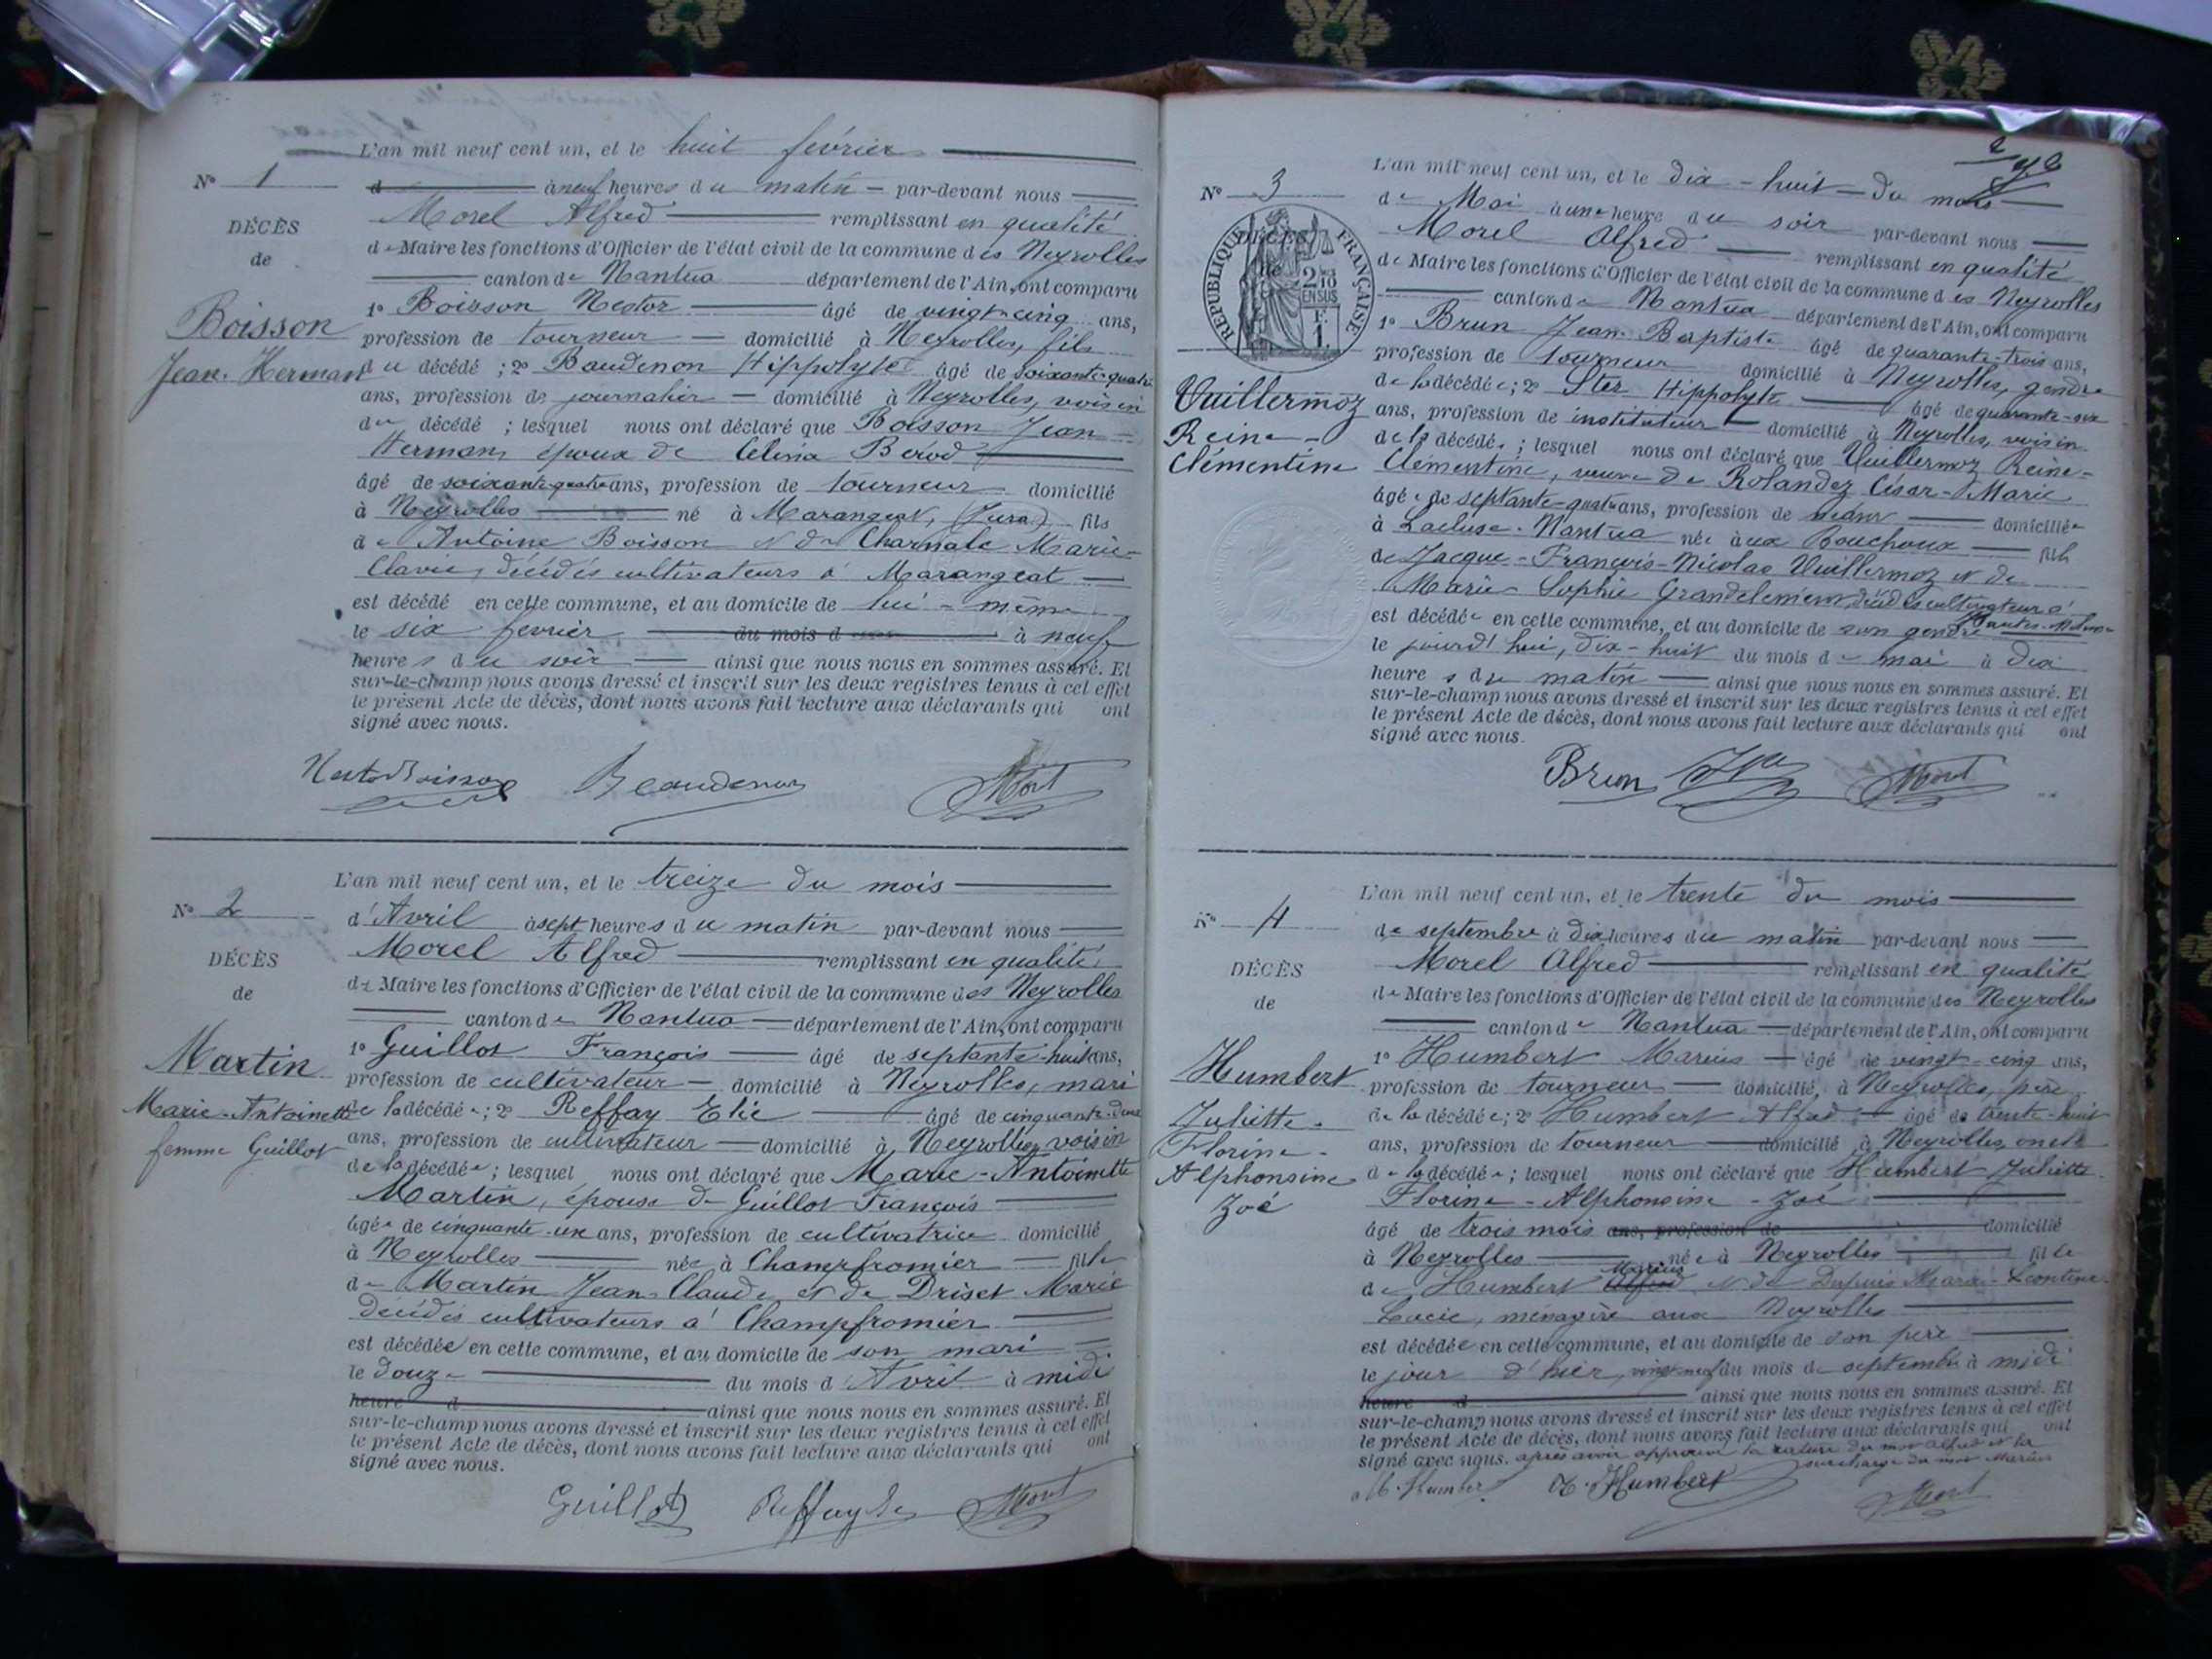 L'an mil neuf cent un, et le huit février
N° 1
d à neuf heures du matin par-devant nous
DÉCÈS
Morel Alfred remplissant en qualité
de
de Maire les fonctions d'Officier de l'état civil de la commune des Neyrolles
canton de Nantua département de l'Ain, ont comparu
Boisson
Jean-Herman
1° Boisson Nestor âgé de vingt-cinq ans,
profession de tourneur domicilié à Neyrolles, fils
du décédé ; 2° Baudenon Hippolyte âgé de soixante-quatre
ans, profession de journalier domicilié à Neyrolles, voisin
du décédé ; lesquel nous ont déclaré que Boisson Jean-
Herman, époux de Célina Bérod
âgé de soixante-quatre ans, profession de tourneur domicilié
à Neyrolles né à Marangeat, (Jura) fils
de Antoine Boisson et de Charnale Marie-
Clavie, décédés cultivateurs à Marangeat
est décédé en cette commune, et au domicile de lui-même
le six février du mois d à neuf
heures du soir ainsi que nous nous en sommes assuré. Et
sur-le-champ nous avons dressé et inscrit sur les deux registres tenus à cet effet
le présent Acte de décès, dont nous avons fait lecture aux déclarants qui ont
signé avec nous.
Nestor Boisson Beaudenon Morel
L'an mil neuf cent un, et le treize du mois
N° 2
d'Avril à sept heures du matin par-devant nous
DÉCÈS
Morel Alfred remplissant en qualité
de
de Maire les fonctions d'Officier de l'état civil de la commune des Neyrolles
canton de Nantua département de l'Ain, ont comparu
Martin
Marie-Antoinette
femme Guillot
1° Guillot François âgé de septante-huit ans,
profession de cultivateur domicilié à Neyrolles, mari
de la décédée ; 2° Reffay Elie âgé de cinquante-deux
ans, profession de cultivateur domicilié à Neyrolles, voisin
de la décédée ; lesquel nous ont déclaré que Marie-Antoinette
Martin, épouse de Guillot François
âgée de cinquante-un ans, profession de cultivatrice domicilié
à Neyrolles née à Champfromier fille
de Martin Jean-Claude et de Driset Marie
décédés cultivateurs à Champfromier
est décédée en cette commune, et au domicile de son mari
le douze du mois d'Avril à midi
heure d ainsi que nous nous en sommes assuré. Et
sur-le-champ nous avons dressé et inscrit sur les deux registres tenus à cet effet
le présent Acte de décès, dont nous avons fait lecture aux déclarants qui ont
signé avec nous.
Guillot Reffay Elie Morel
L'an mil neuf cent un, et le dix-huit du mois
N° 3
de Mai à une heure du soir par-devant nous
Morel Alfred remplissant en qualité
DÉCÈS
de
RÉPUBLIQUE FRANÇAISE
2/10 EN SUS
1 F.
de Maire les fonctions d'Officier de l'état civil de la commune des Neyrolles
canton de Nantua département de l'Ain, ont comparu
Vuillermoz
Reine-
Clémentine
1° Brun Jean-Baptiste âgé de quarante-trois ans,
profession de tourneur domicilié à Neyrolles, gendre
de la décédée ; 2° Ster Hippolyte âgé de quarante-six
ans, profession de instituteur domicilié à Neyrolles, voisin
de la décédée ; lesquel nous ont déclaré que Vuillermoz Reine-
Clémentine, veuve de Rolandez César-Marie
âgée de septante-quatre ans, profession de domiciliée
à Lacluse-Nantua née aux Bouchoux fille
de Jacque-François-Nicolas Vuillermoz et de
Marie-Sophie Grandclement, décédés cultivateurs à
est décédée en cette commune, et au domicile de son gendre
le jourd'hui, dix-huit du mois de mai à dix
heures du matin ainsi que nous nous en sommes assuré. Et
sur-le-champ nous avons dressé et inscrit sur les deux registres tenus à cet effet
le présent Acte de décès, dont nous avons fait lecture aux déclarants qui ont
signé avec nous.
Brun Morel
L'an mil neuf cent un, et le trente du mois
N° 4
de septembre à dix heures du matin par-devant nous
DÉCÈS
Morel Alfred remplissant en qualité
de
de Maire les fonctions d'Officier de l'état civil de la commune des Neyrolles
canton de Nantua département de l'Ain, ont comparu
Humbert
Juliette-
Florine-
Alphonsine
Zoé
1° Humbert Marius âgé de vingt-cinq ans,
profession de tourneur domicilié à Neyrolles, père
de la décédée ; 2° Humbert Alfred âgé de trente-huit
ans, profession de tourneur domicilié à Neyrolles, oncle
de la décédée ; lesquel nous ont déclaré que Humbert Juliette-
Florine-Alphonsine-Zoé
âgé de trois mois ans, profession de domicilié
à Neyrolles née à Neyrolles fille
de Humbert Alfred Marius et de Dupuis Marie-Léontine-
Lucie, ménagère aux Neyrolles
est décédée en cette commune, et au domicile de son père
le jour d'hier, vingt-neuf du mois de septembre à midi
heure d ainsi que nous nous en sommes assuré. Et
sur-le-champ nous avons dressé et inscrit sur les deux registres tenus à cet effet
le présent Acte de décès, dont nous avons fait lecture aux déclarants qui ont
signé avec nous. après avoir approuvé la rature du mot alfred et la
surcharge du mot Marius
M. Humbert A. Humbert Morel